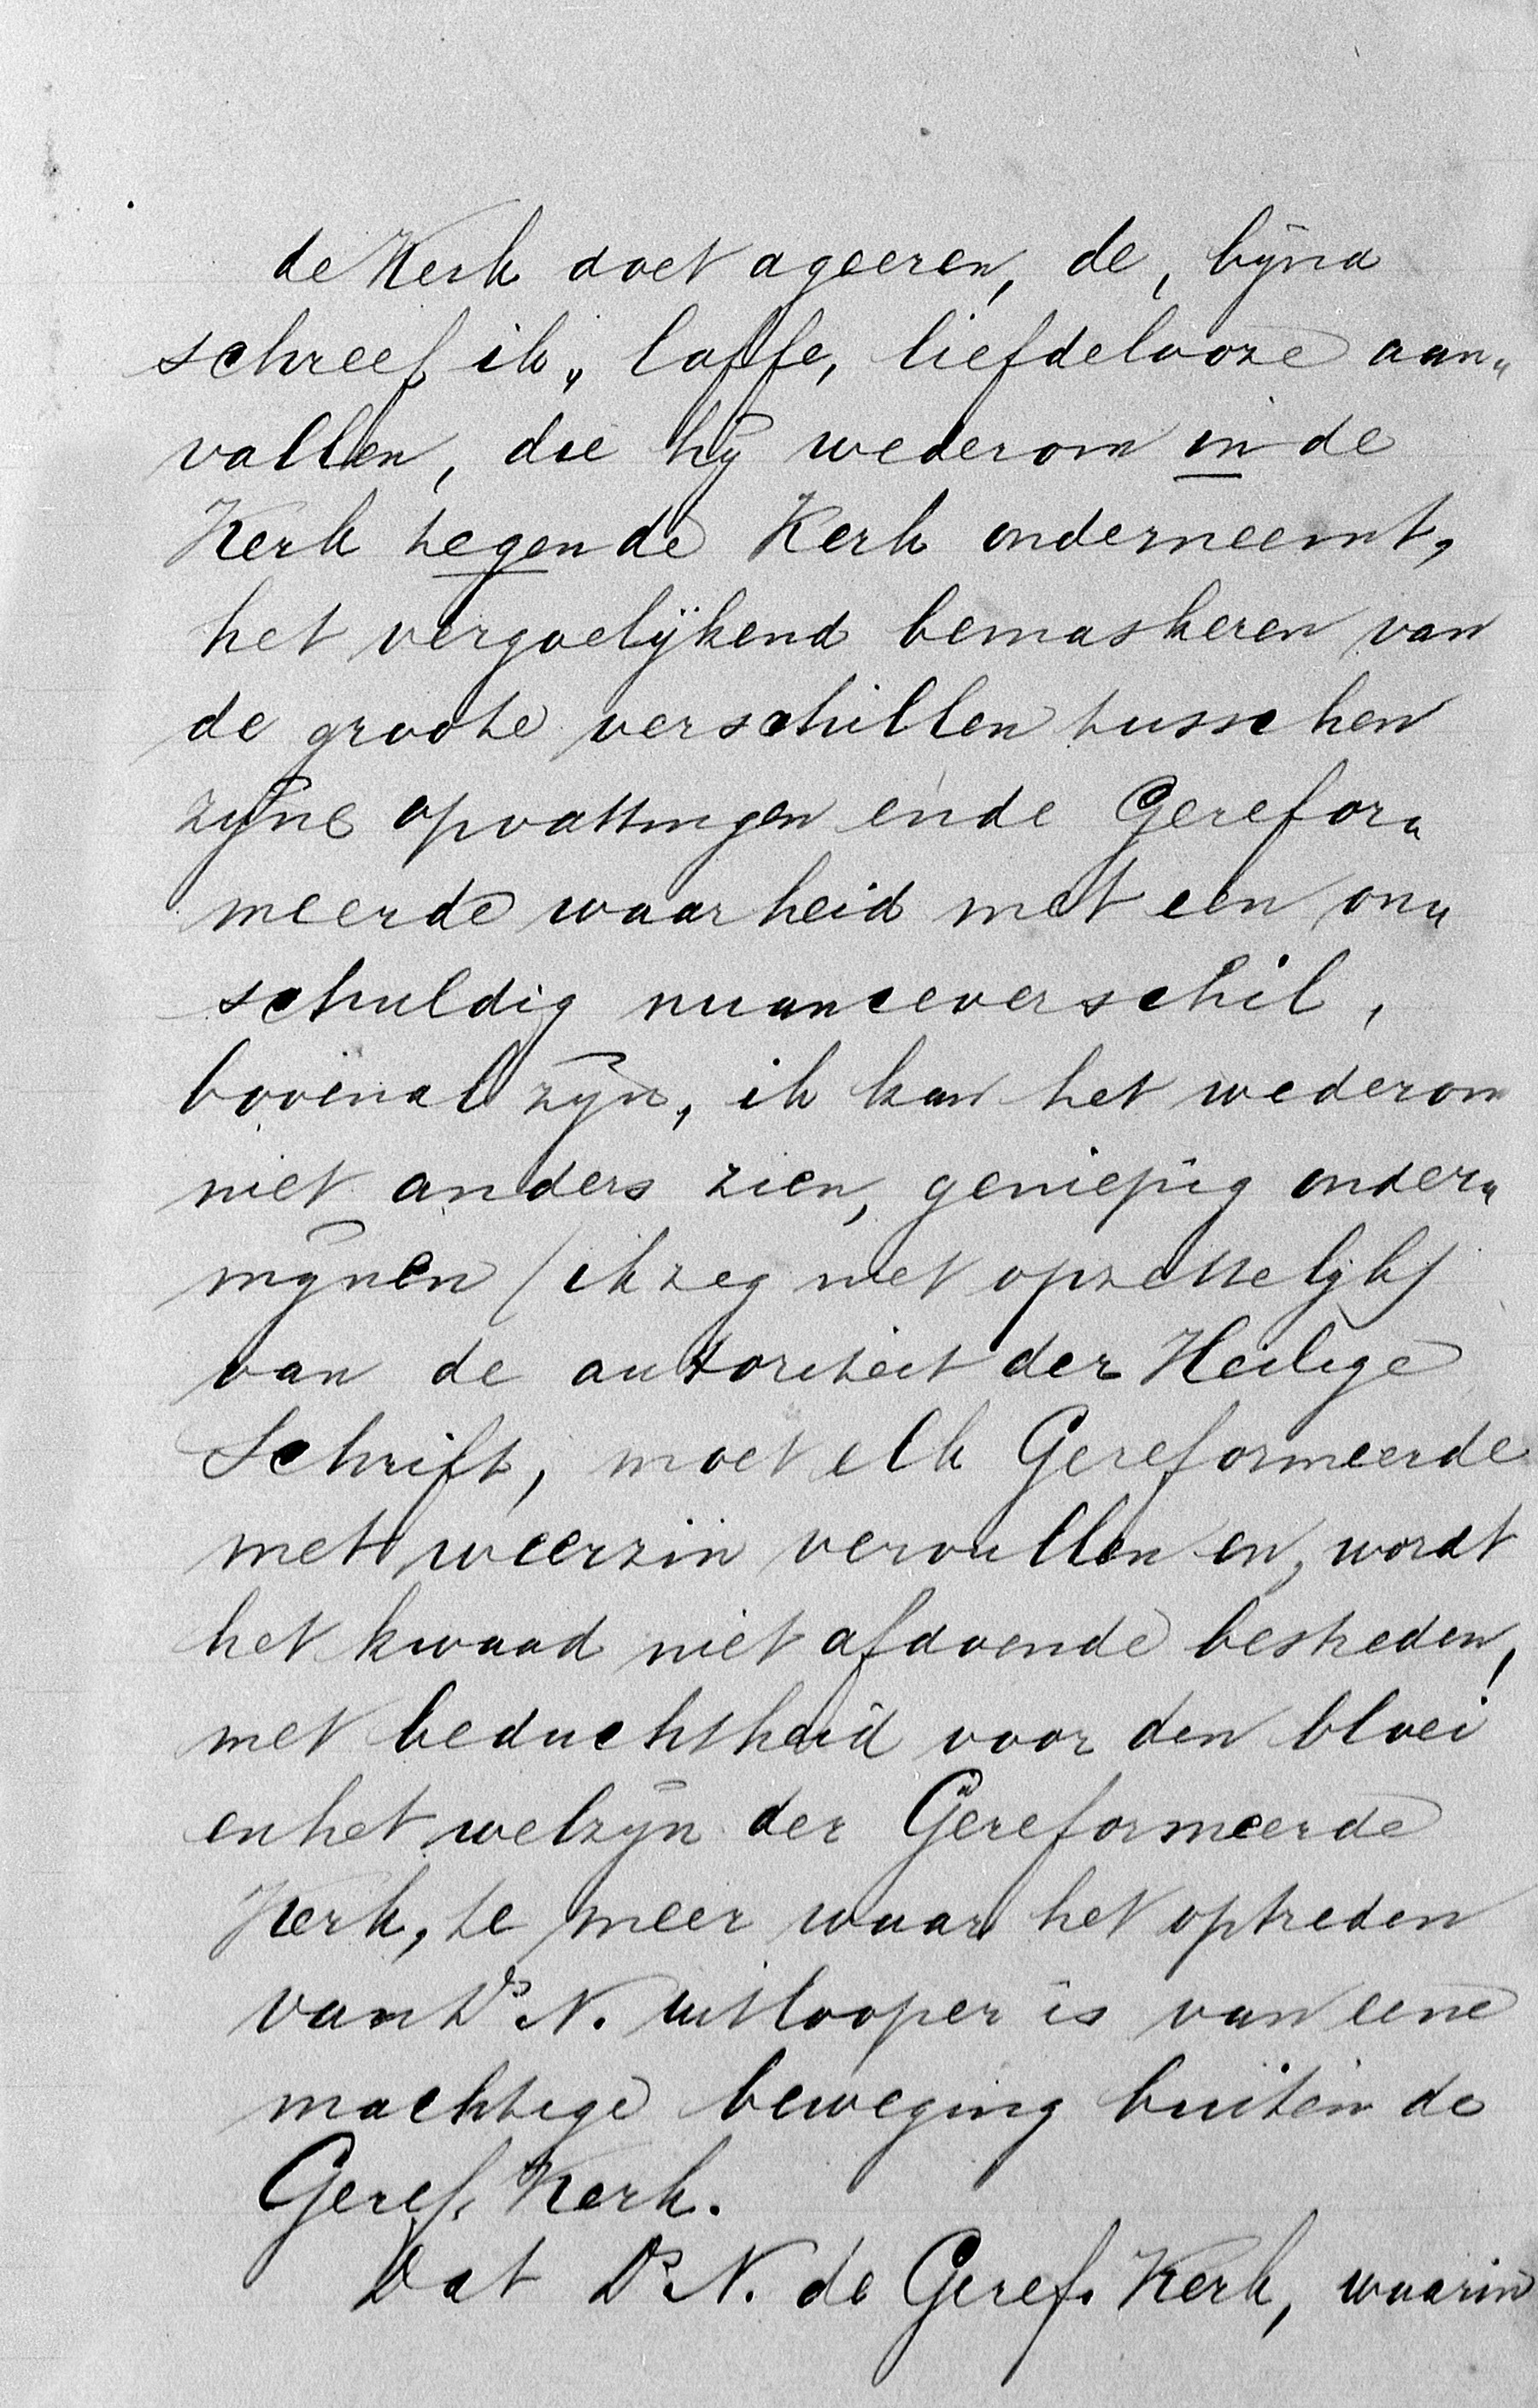 de Kerk doet ageeren, de, bijna
schreef ik „ laffe, liefdelooze aan„
vallen, die hij wederom in de
Kerk tegen de Kerk onderneemt,
het vergoelijkend bemaskeren van
de groote verschillen tusschen
zijne opvattingen en de Gerefor„
meerde waarheid met een on„
schuldig nuanceverschil,
bovenal zijn, ik kan het wederom
niet anders zien, geniepig onder„
mijnen (ik zeg niet opzettelijk)
van de autoriteit der Heilige
Schrift, moet elk Gereformeerde
met weerzin vervullen en, wordt
het kwaad niet afdoende bestreden,
met beduchtheid voor den bloei
en het welzijn der Gereformeerde
Kerk, te meer waar het optreden
van Ds N. uitlooper is van eene
machtige beweging buiten de
Geref. Kerk.
Dat Ds N. de Geref. Kerk, waarin